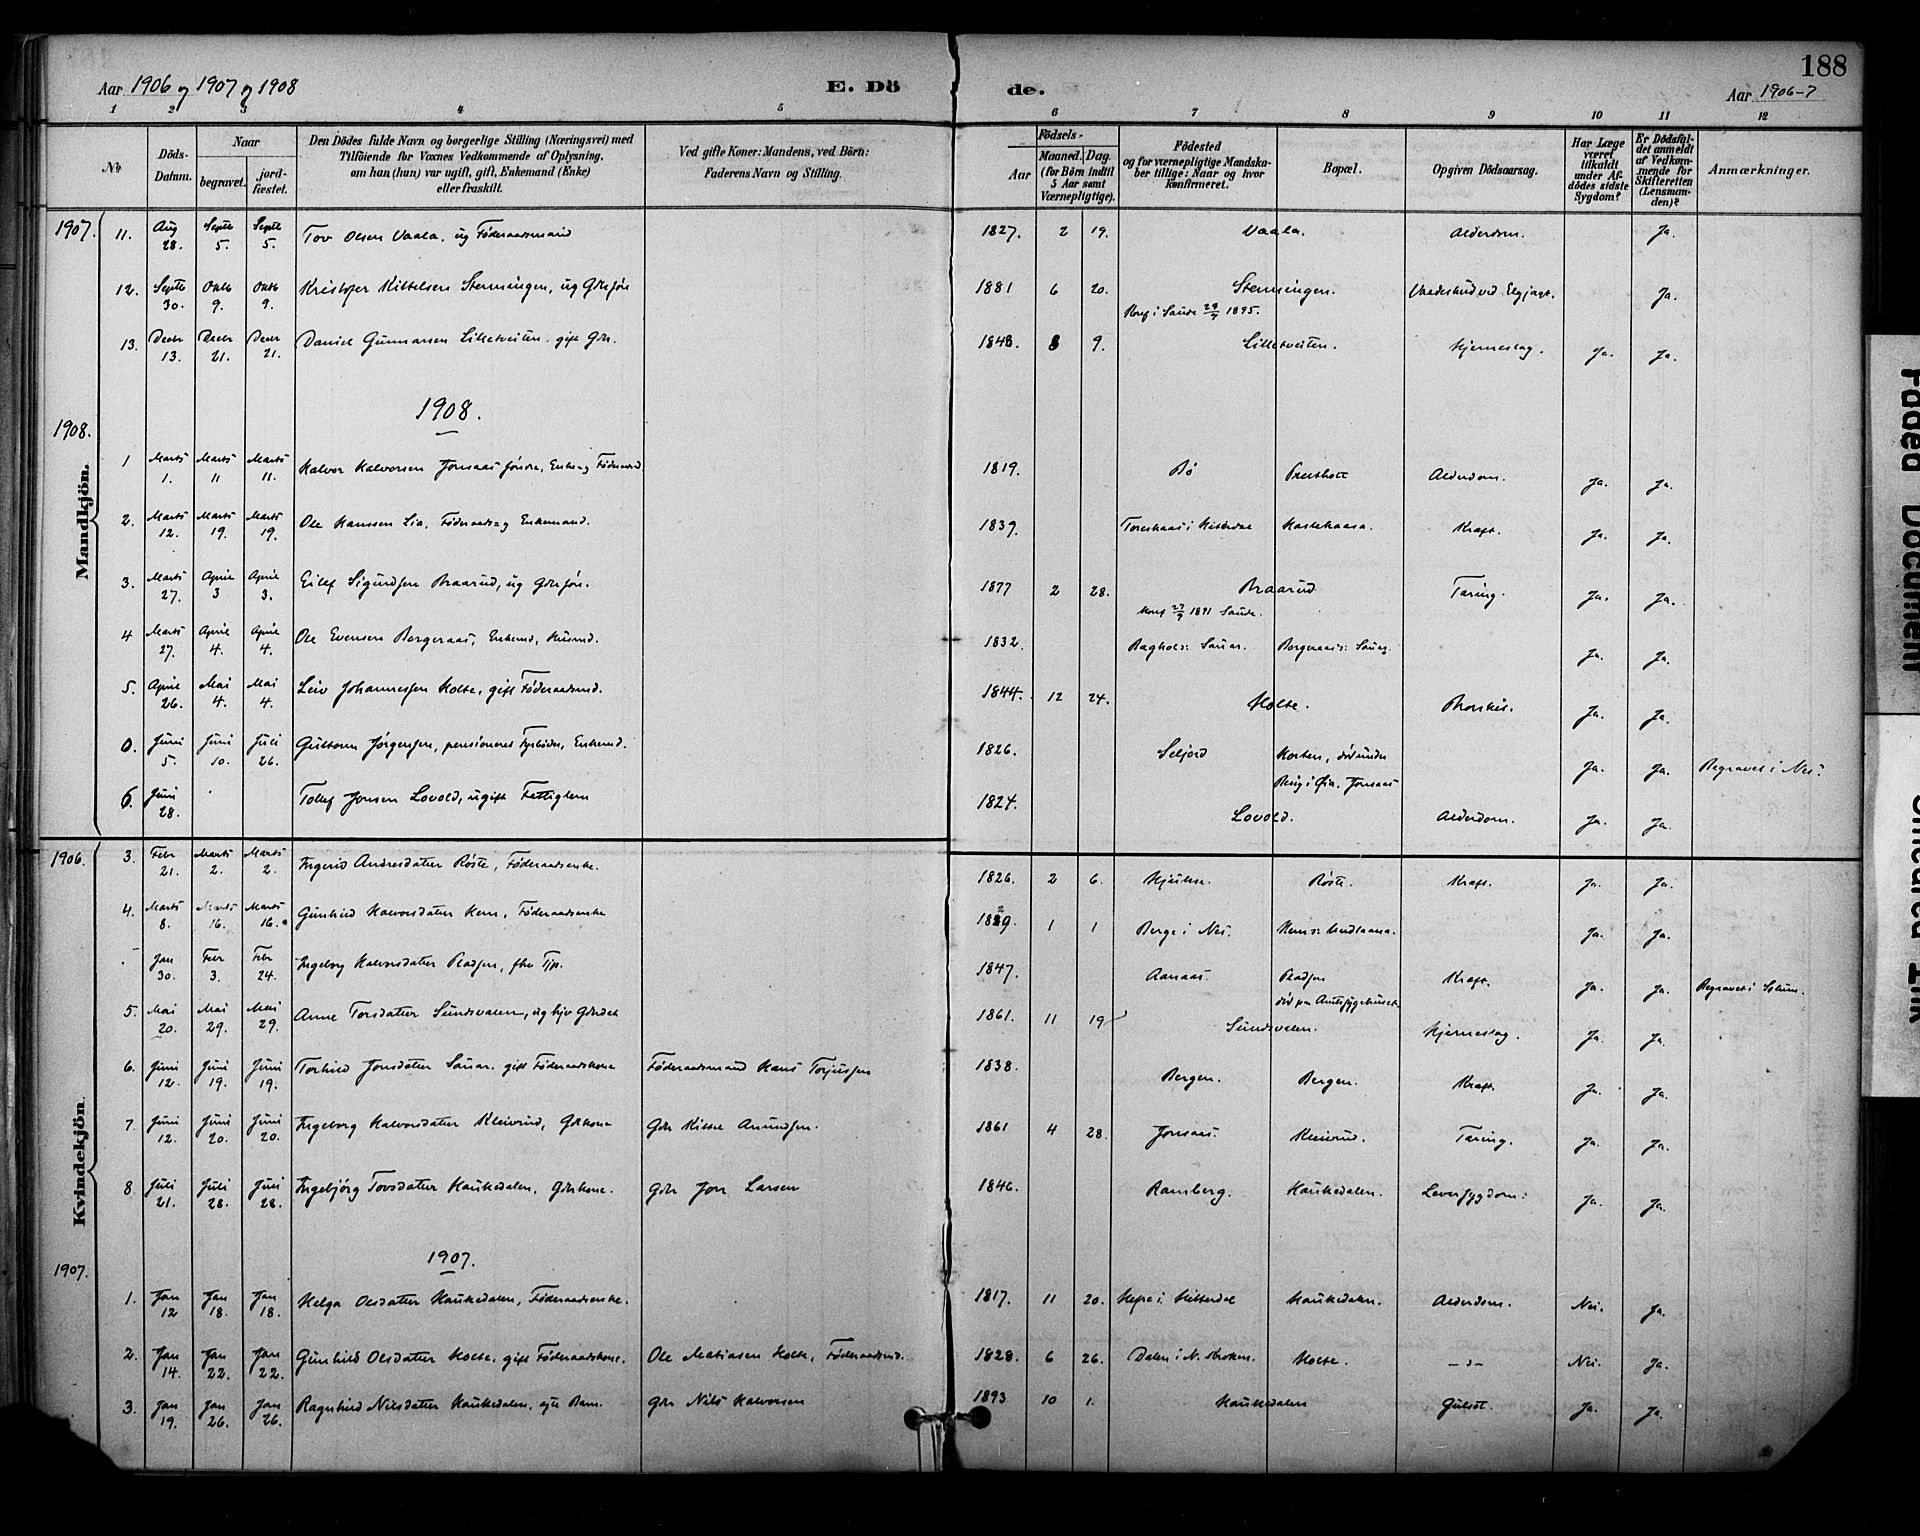 188
Aar 1906 og 1907 og 1908 E. Dö de. Aar 1906-7
1 2 3 4 5 6 7 8 9 10 11 12
No
Döds-Datum.
Naar
begravet.
jord-fæstet.
Den Dödes fulde Navn og borgerlige Stilling (Næringsvei) med
Tilföiende for Voxnes Vedkommende af Oplysning,
om han (hun) var ugift, gift, Enkemand (Enke)
eller fraskilt.
Ved gifte Koner: Mandens, ved Börn:
Faderens Navn og Stilling.
Födsels-
Aar
Maaned. Dag.
(for Börn indtil
5 Aar samt
Værnepligtige).
Födested
og for værnepligtige Mandska-
ber tillige: Naar og hvor
konfirmeret.
Bopæl.
Opgiven Dödsaarsag.
Har Læge
været
tilkaldt
under Af-
dödes sidste
Sygdom?
Er Dödsfal-
det anmeldt
af Vedkom-
mende for
Skifteretten
(Lensman-
den)?
Anmærkninger.
Mandkjön.
1907. 11. Aug 28. Septb 5. Septb 5. Tov Olsen Vaala, ug Føderaadsmand 1827. 2 19. Vaala. Alderdom. Ja.
12. Septb 30. Oktb 9. Oktb 9. Kristofer Kittelsen Stenningen, ug Gdrsøn 1881 6 20. Stenningen. Vaadeskud ved Elgjagt. Ja.
Konf i Saude 29/9 1895.
13. Decbr 13. Decbr 21. Decbr 21. Daniel Gunnarsen Lilletveiten. gift Gdr. 1848. 8 9. Lilletveiten. Hjerneslag. Ja. Ja.
1908.
1908.
1 Marts 1. Marts 11 Marts 11. Halvor Halvorsen Jonsaas Søndre, Enkem og Fødermd 1819. Bø Prestholt Alderdom. Ja. Ja.
2. Marts 12. Marts 19. Marts 19. Ole Hanssen Lia, Føderaads og Enkemand. 1839. i Hitterdal Kraft. Ja. Ja.
3. Marts 27. April 3 April 3. Eilef Sigurdsen Braarud, ug Gdrsøn. 1877 2 28. Braarud Tæring. Ja. Ja.
Konf 27/9 1891 Saude.
4 Marts 27. April 4. April 4. Ole Evensen Borgeraas, Enkemd, Husmd. 1832. Sauar. Borgeraas: Ja. Ja.
5. April 26. Mai 4. Mai 4. Leiv Johannessen Holte, gift Føderaadsmd. 1844. 12 24. Holte. Bronkit. Ja. Ja.
0. Juni 5. Juni 10. Juli 26. Guttorm Jørgensen, pensioneret Fyrbøder, Enkemd. 1826. Seljord Horten, død under Ja. Ja. Begravet i Nes.
Besøg i Jonsaas
6. Juni 28. Tollef Jonsen Lovold, ugift Fattiglem 1824. Lovold. Alderdom. Ja. Ja.
Kvindekjön.
1906. 3. Febr 21. Marts 2. Marts 2. Ingerid Andresdatter Røste, Føderaadsenke. 1826. 2 6. Hjukse. Røste. Kraft. Ja. Ja.
4. Marts 8. Marts 16. Marts 16. Gunhild Halvorsdatter Hem, Føderaadsenke 1829. 1 1 Berge i Nes. Ja. Ja.
Jan 30. Febr 3. Febr 24. Ingeborg Halvorsdatter Pladsen, 1847. Aanaas. Pladsen Kraft. Ja. Ja. Begravet i Solum.
død paa Amtssygehuset
5. Mai 20. Mai 29. Mai 29. Anne Torsdatter Sundsvalen, ug 1861. 11 19 Sundsvalen. Hjerneslag. Ja. Ja.
6. Juni 12. Juni 19. Juni 19. Torhild Jonsdatter Sauar. gift Føderaadskone Føderaadsmand Hans Torjussen 1838. Bergen. Bergen. Kraft. Ja. Ja.
7. Juni 12. Juni 20. Juni 20. Ingeborg Halvorsdatter Kleivrud, Gdrkone Gdr Kittel Amundsen. 1861 4 28. Jonsaas. Kleivrud. Tæring. Ja. Ja.
8. Juli 21. Juli 28. Juli 28. Ingebjörg Tovsdatter Haukedalen, Gdrkone. Gdr Jon Larsen 1846. Ramberg. Haukedalen. Leversygdom. Ja. Ja.
1907.
1907.
1. Jan 12 Jan 18. Jan 18. Helga Olsdatter Haukedalen, Føderaadsenke. 1817. 11 20. i Hitterdal Haukedalen. Alderdom. Nei. Ja.
2. Jan 14. Jan 22. Jan 22. Gunhild Olsdatter Holte, gift Føderaadskone. Ole Matiasen Holte, Føderaadsmd. 1828. 6 26. Dalen i Holte. -"- Nei. Ja.
3. Jan 19. Jan 26. Jan 26. Ragnhild Nilsdatter Haukedalen, egte Barn. Gdr Nils Halvorsen 1893 10 1. Haukedalen Gulsot. Ja. Ja.
Faded Document